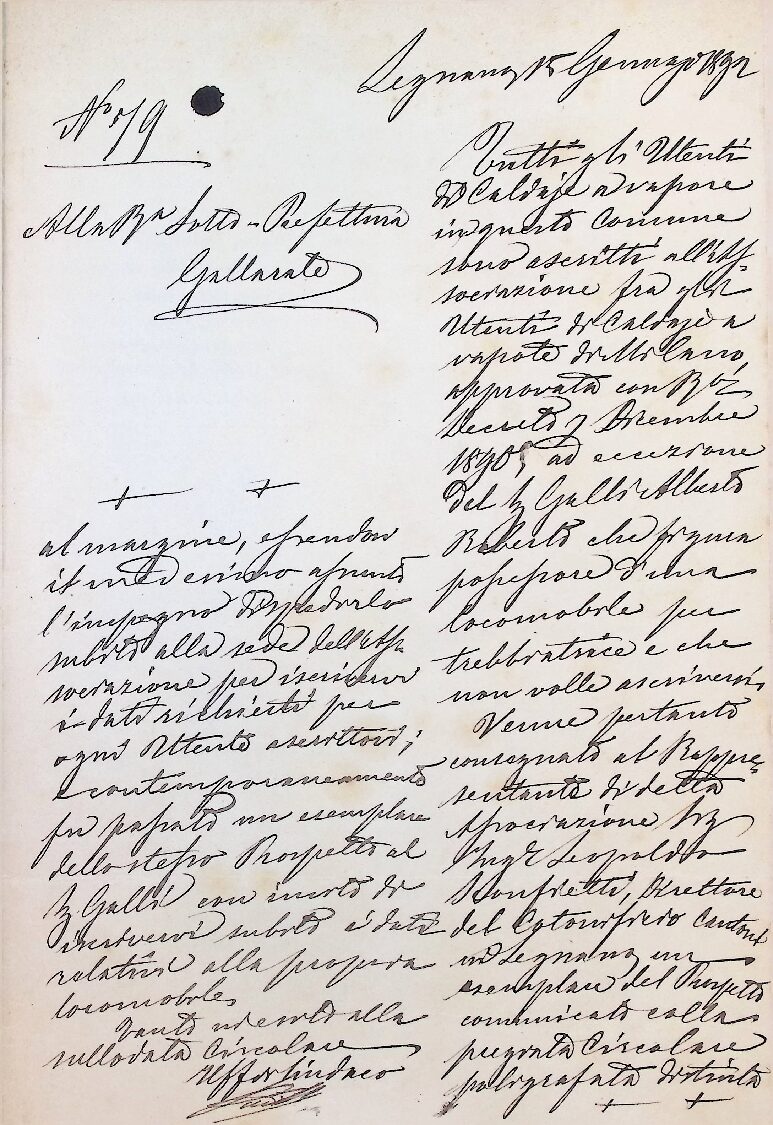 Legnano, 15 Gennajo 1892
N° 179
Alla Ra Sotto-Prefettura
Gallarate
Tutti gli Utenti
di Caldaje a vapore
in questo Comune
sono ascritti all'As-
sociazione fra gli
Utenti di Caldaje a
vapore di Milano,
approvata con R°
Decreto 7 Dicembre
1890, ad eccezione
del Sig Galli Alberto
Roberto che figura
possessore d'una
locomobile per
trebbiatrice e che
non volle ascriversi.
Venne pertanto
consegnato al Rappre-
sentante di detta
Associazione Sig
Ingr Leopoldo
Direttore
del Cotonificio Cantoni
in Legnano, un
esemplare del Prospetto
comunicato colla
pregiata Circolare
poligrafata distinta
al margine, essendosi
il medesimo assunto
l'impegno di spedirlo
subito alla sede dell'Ass
sociazione per iscrivervi
i dati richiesti per
ogni Utente ascrittovi;
e contemporaneamente
fu passato un esemplare
dello stesso Prospetto al
Sig Galli con invito di
inscrivervi subito i dati
relativi alla propria
locomobile.
Tanto in esito alla
sullodata Circolare
Il ff di Sindaco